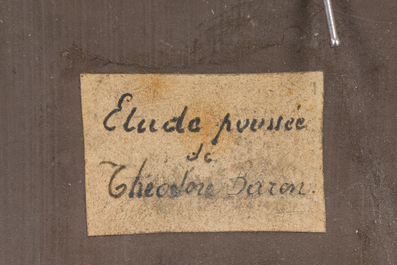 Etude poussée
de
Théodore Baron.